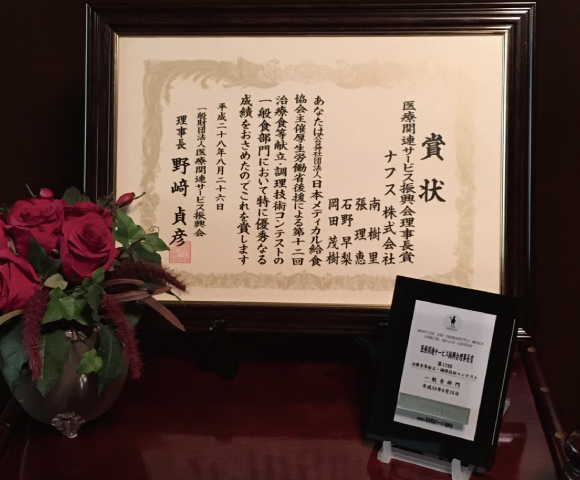 賞状
医療関連サービス振興会理事長賞
ナフス 株式会社
南 樹里
張 理恵
石野 早梨
岡田 茂樹
あなたは公益社団法人日本メディカル給食
協会主催厚生労働省後援による第十二回
治療食等献立・調理技術コンテストの
一般食部門において特に優秀なる
成績をおさめたのでこれを賞します
平成二十八年八月二十六日
一般財団法人医療関連サービス振興会
理事長 野﨑 貞彦
HOSPITAL AND THERAPEUTIC MEALS
COOKING SKILLS CONTEST
医療関連サービス振興会理事長賞
第12回
治療食等献立・調理技術コンテスト
一般食部門
平成28年8月26日